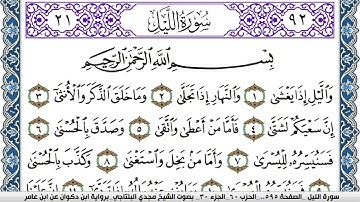 ٩٢ سُورَةُ اللَّيْلِ ٢١
بِسْمِ اللَّهِ الرَّحْمَٰنِ الرَّحِيمِ
وَالَّيْلِ إِذَا يَغْشَىٰ ١ وَالنَّهَارِ إِذَا تَجَلَّىٰ ٢ وَمَا خَلَقَ الذَّكَرَ وَالْأُنثَىٰ ٣
إِنَّ سَعْيَكُمْ لَشَتَّىٰ ٤ فَأَمَّا مَنْ أَعْطَىٰ وَاتَّقَىٰ ٥ وَصَدَّقَ بِالْحُسْنَىٰ ٦
فَسَنُيَسِّرُهُ لِلْيُسْرَىٰ ٧ وَأَمَّا مَن بَخِلَ وَاسْتَغْنَىٰ ٨ وَكَذَّبَ بِالْحُسْنَىٰ
سورة الليل .. الصفحة ٥٩٥.. الحزب ٦٠ الجزء ٣٠ .. بصوت الشيخ مجدي البلتاجي .. برواية ابن ذكوان عن ابن عامر